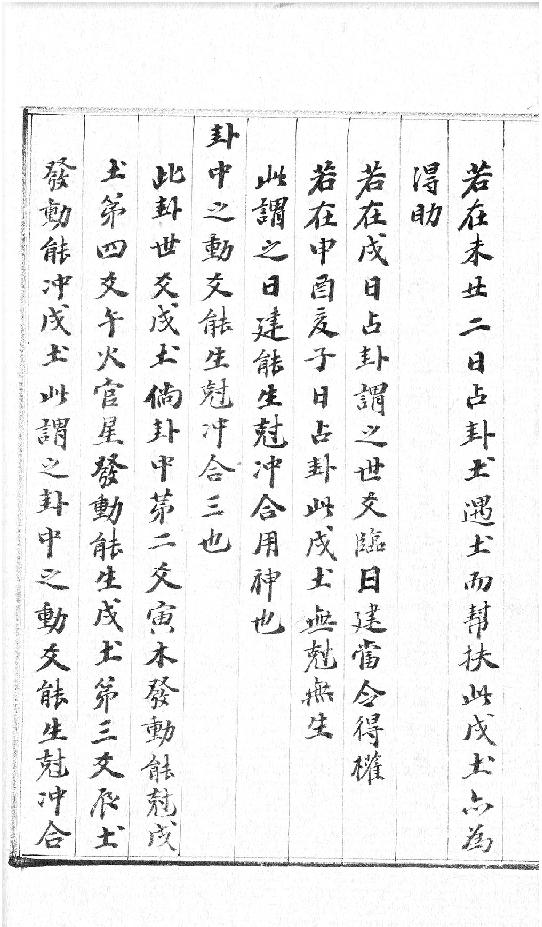 若在未丑二日占卦土遇土而幫扶此戌土亦為
得助
若在戌日占卦謂之世爻臨日建當令得權
若在申酉亥子日占卦此戌土無尅無生
此謂之日建能生尅冲合用神也
卦中之動爻能生尅冲合三也
此卦世爻戌土倘卦中第二爻寅木發動能尅戌
土第四爻午火官星發動能生戌土第三爻辰土
發動能冲戌土此謂之卦中之動爻能生尅冲合